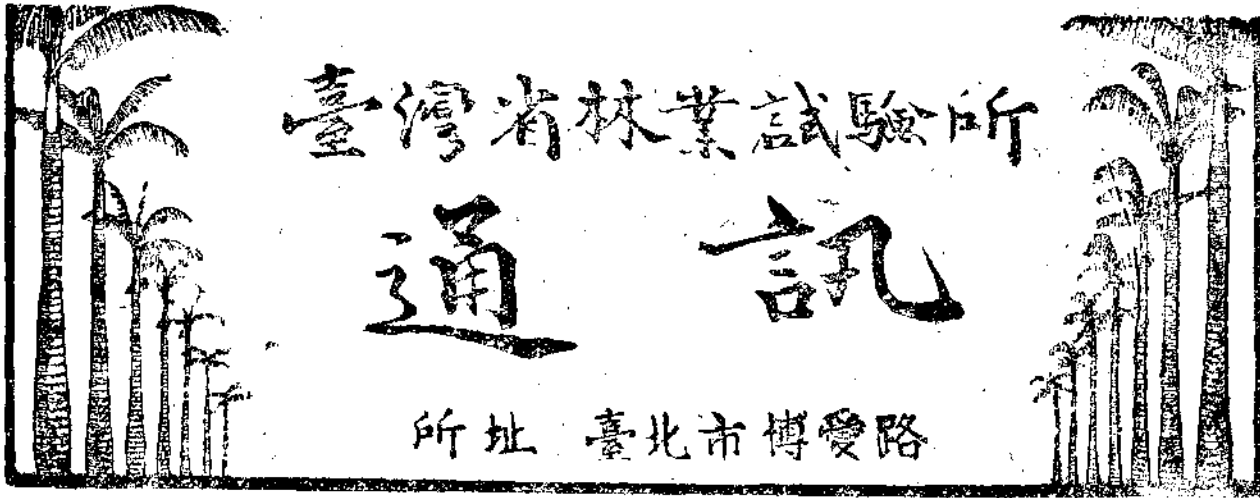 臺灣省林業試驗所
通訊
所址 臺北市博愛路